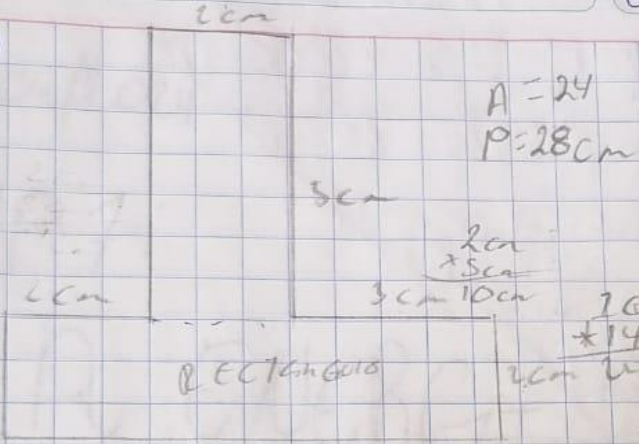 2cm
A = 24
P=28cm
5cm
2cm
*5cm
10cm
2cm
3cm
10
*14
2cm
RECTANGULO